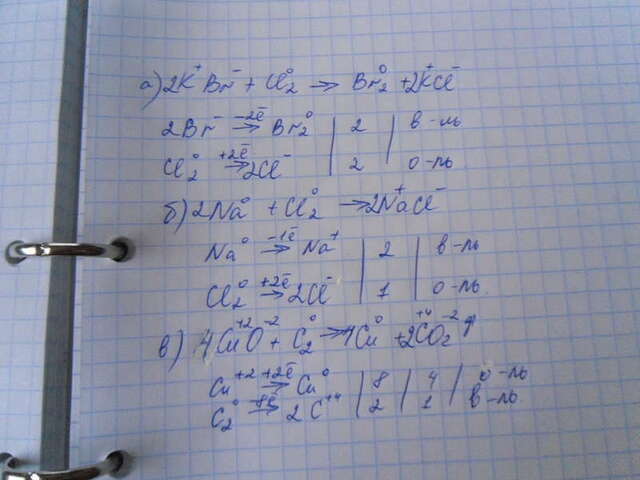 а) 2K⁺Br⁻ + Cl₂⁰ → Br₂⁰ + 2K⁺Cl⁻
2Br⁻ –2ē→ Br₂⁰ | 2 | в-ль
Cl₂⁰ +2ē→ 2Cl⁻ | 2 | о-ль
б) 2Na⁰ + Cl₂⁰ → 2Na⁺Cl⁻
Na⁰ –1ē→ Na⁺ | 2 | в-ль
Cl₂⁰ +2ē→ 2Cl⁻ | 1 | о-ль
в) 4Cu⁺²O⁻² + C₂⁰ → 4Cu⁰ + 2C⁺⁴O₂⁻² ↑
Cu⁺² +2ē→ Cu⁰ | 8 | 4 | о-ль
C₂⁰ –8ē→ 2C⁺⁴ | 2 | 1 | в-ль